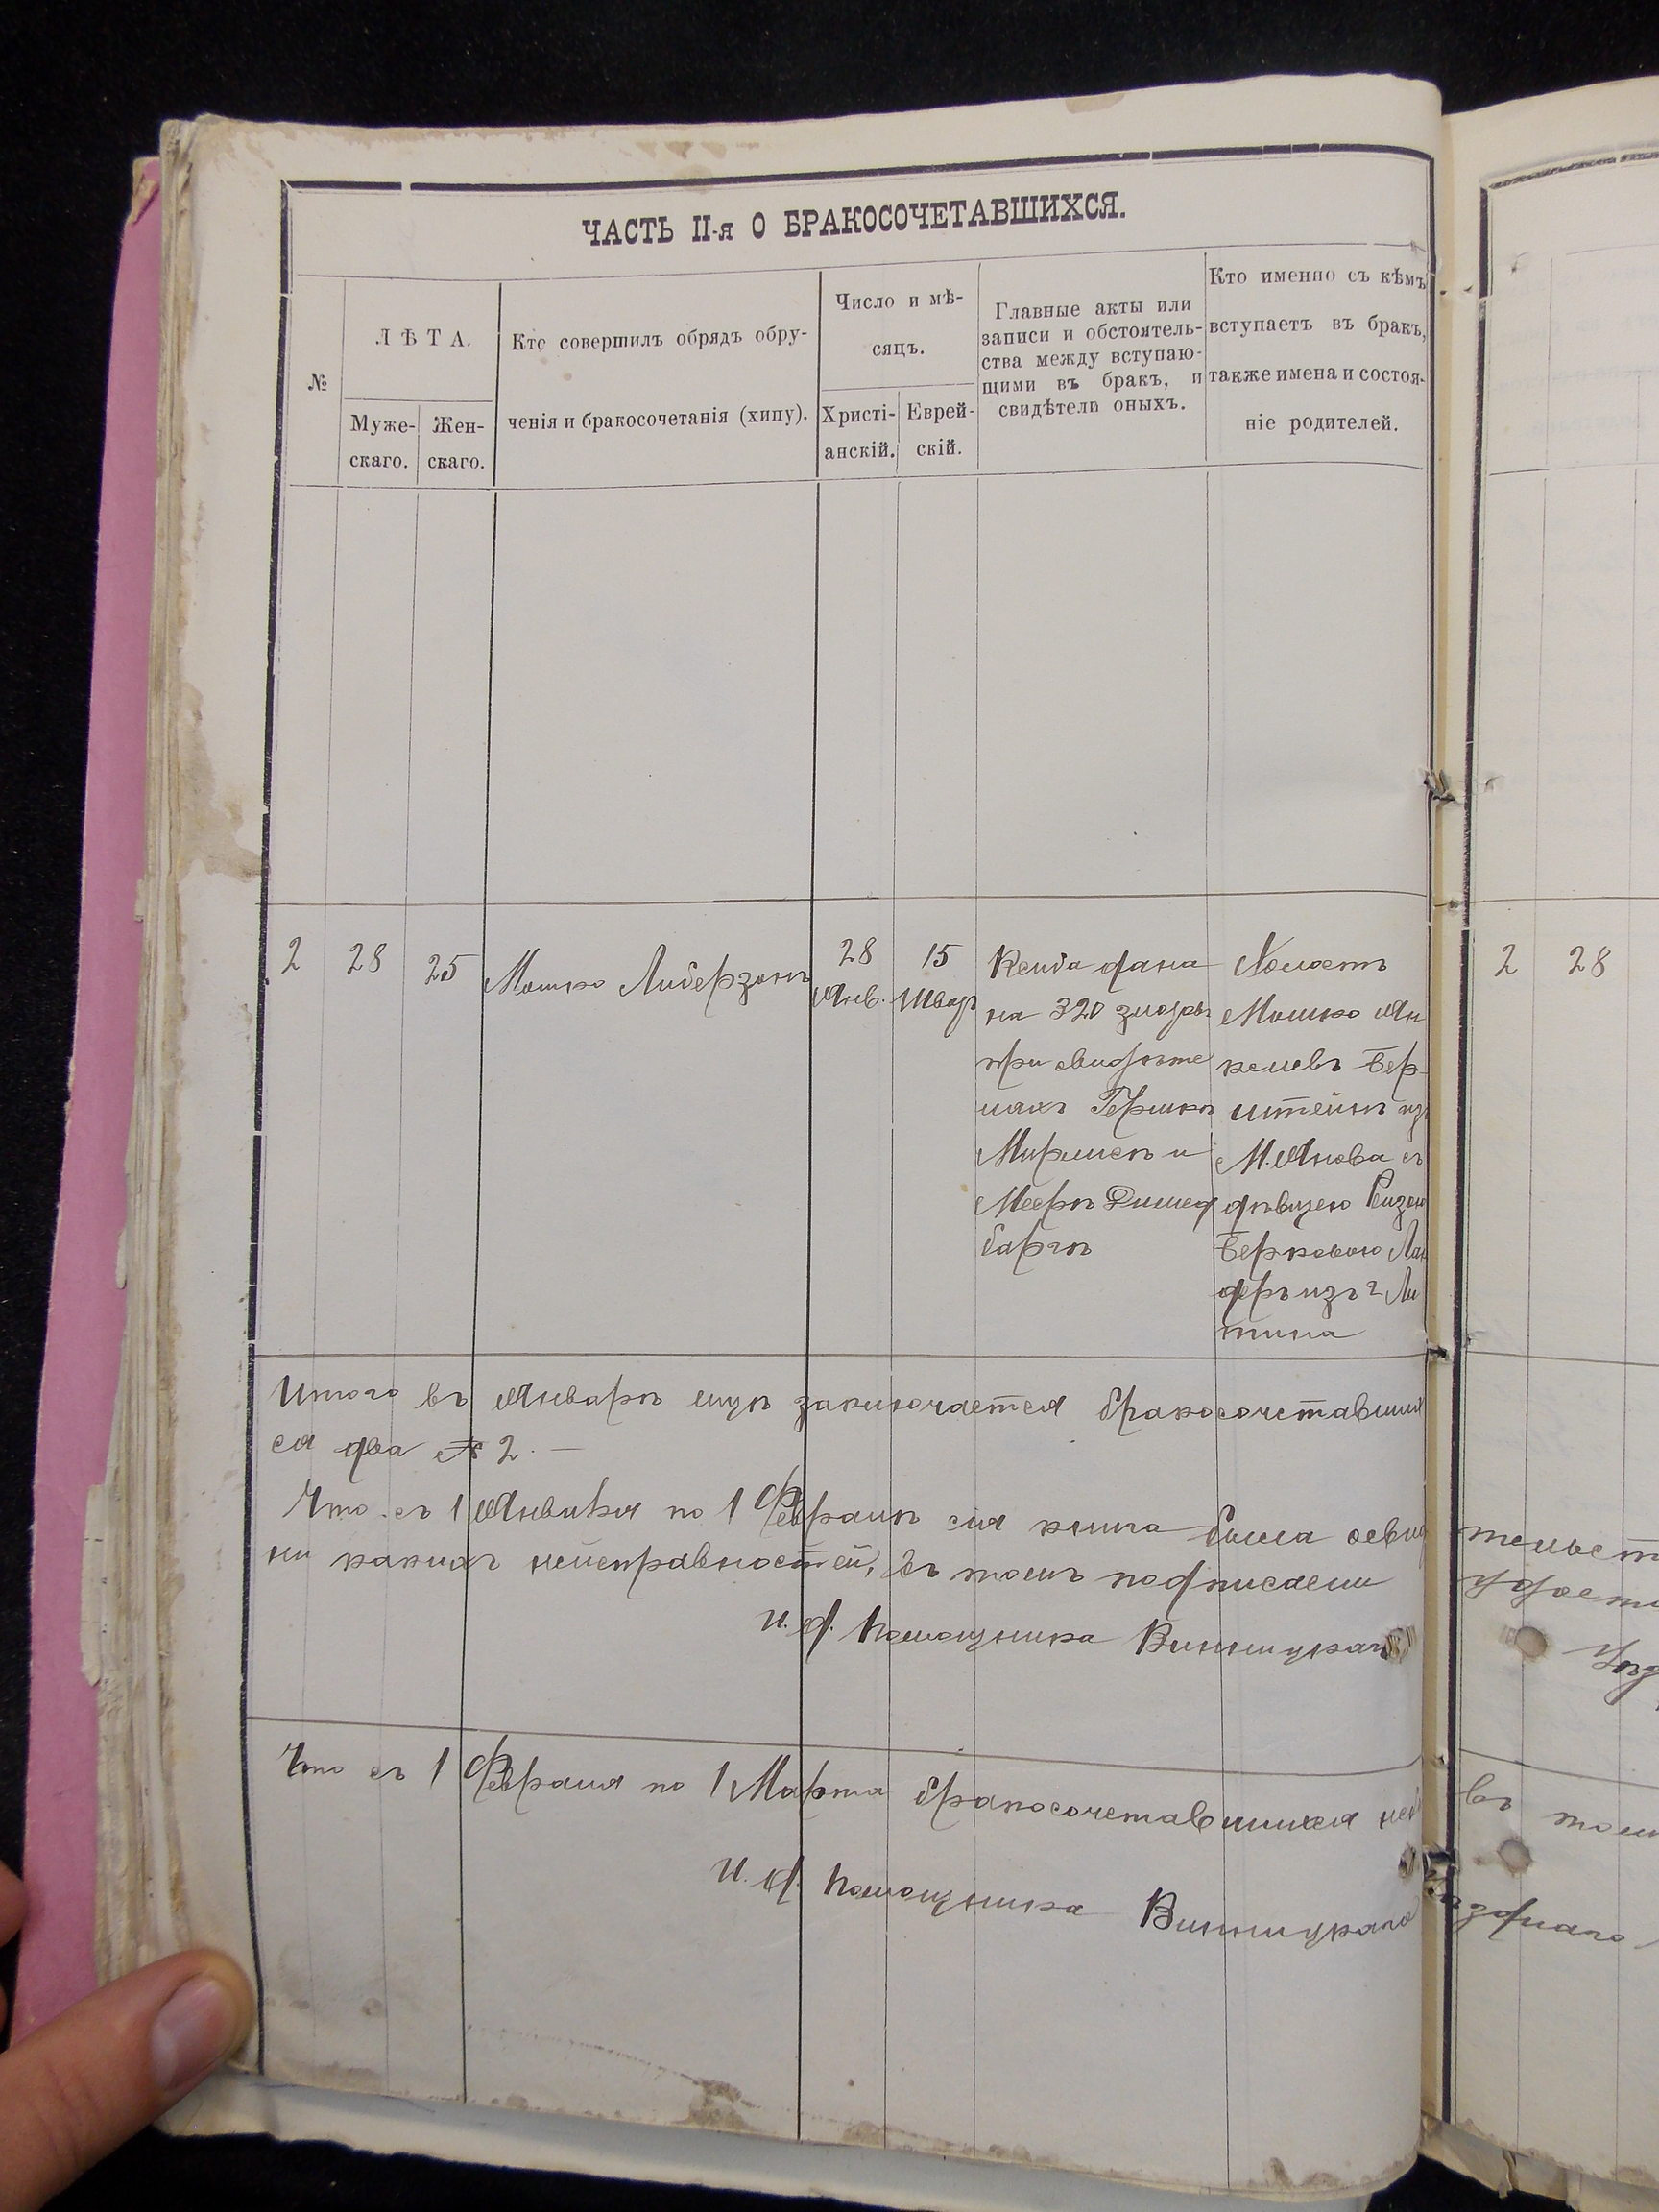 ЧАСТЬ II-я О БРАКОСОЧЕТАВШИХСЯ.
№
ЛѢТА.
Муже-
скаго.
Жен-
скаго.
Кто совершилъ обрядъ обру-
ченія и бракосочетанія (хипу).
Число и мѣ-
сяцъ.
Христі-
анскій.
Еврей-
скій.
Главные акты или
записи и обстоятель-
ства между вступаю-
щими въ бракъ, и
свидѣтели оныхъ.
Кто именно съ кѣмъ
вступаетъ въ бракъ,
также имена и состоя-
ніе родителей.
2
28
25
Мошко Либерзонъ
28
Янв.
15
Шватъ
дана
на 320 злотъ
при свидѣте
ляхъ Гершкѣ
и
Меерѣ
баргѣ
Холостъ
Мошко Ян
келевъ Бер-
штейнъ изъ
М. Янова съ
дѣвицею Рейзею
Берковою
деръ изъ г. Ли
тина
Итого въ Январѣ мцѣ заключается бракосочетавших
ся два № 2. —
Что съ 1 Января по 1 Февраля сія книга была освид
ни какихъ неисправностей, въ томъ подписами
И. д. Помощника Винницкаго
Что съ 1 Февраля по 1 Марта бракосочетавшихся
И. д. Помощника Винницкаго
2 28
тельст
въ томъ